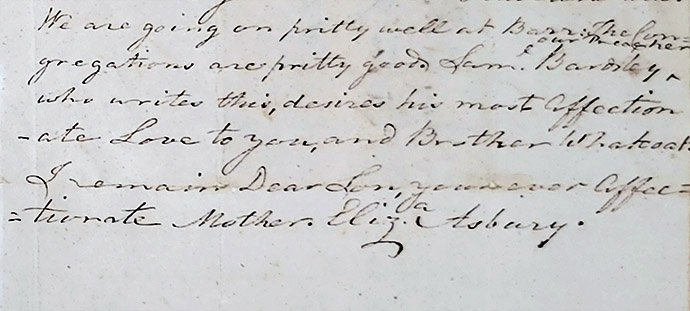 We are going on pritty well at Barr. The Con=
our Preacher
gregations are pritty good Sam.l Bardsley,
who writes this, desires his most Affection
-ate Love to you, and Brother Whatcoat
I remain Dear Son, your ever Affec=
=tionate Mother. Eliz.a Asbury.